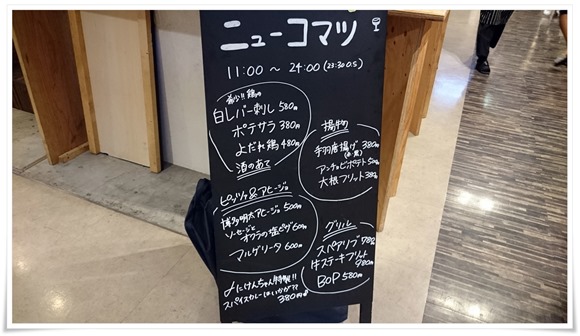 ニューコマツ
11:00 ～ 24:00 (23:30 O.S)
希少!! 鶏の
白レバー刺し 580円
ポテサラ 380円
よだれ鶏 480円
酒のあて
揚物
手羽唐揚げ 380円
アンチョビポテト 500
大根フリット 380
ピッツァ&アヒージョ
博多明太アヒージョ 500円
ソーセージと
オクラの塩ピザ 600円
マルゲリータ 600円
グリル
スペアリブ 780
牛ステーキフリット
980円
BOP 580円
にけんちゃん特製!!
スパイスカレーはいかが??
380円